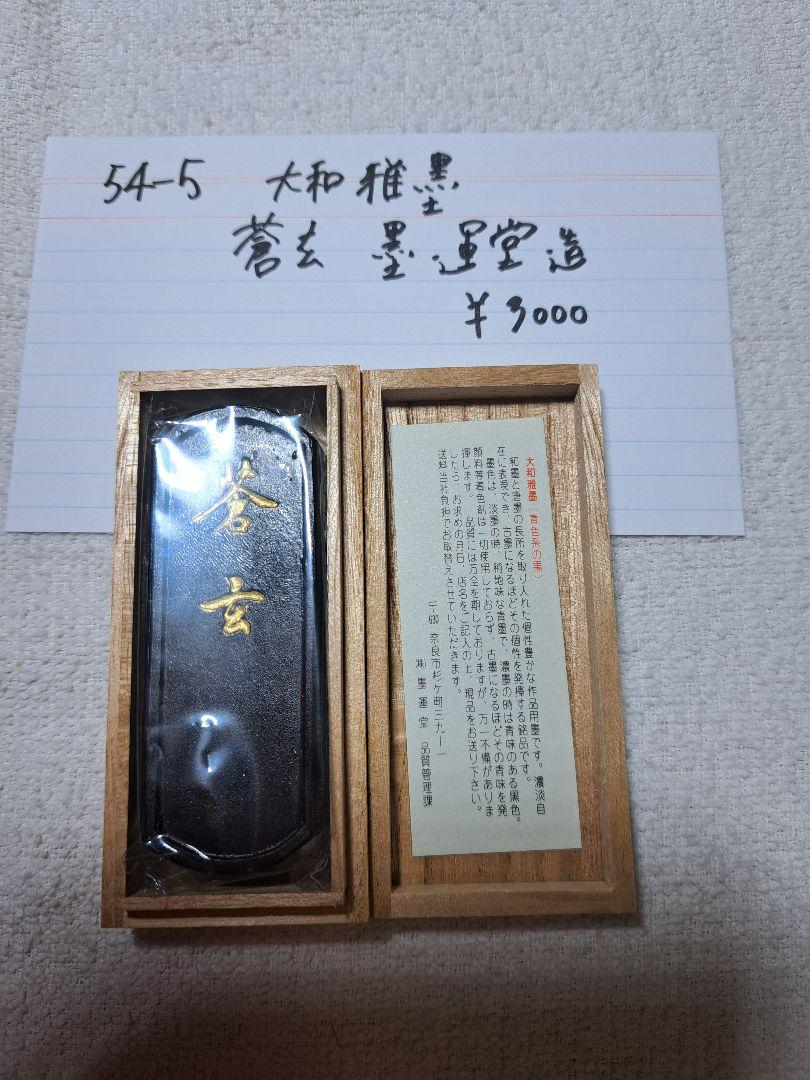 54-5 大和雅墨
蒼玄 墨運堂造
¥3000
蒼玄
大和雅墨(青色系の黒)
和墨と唐墨の長所を取り入れた個性豊かな作品用墨です。濃淡自
在に表現でき、古墨になるほどその個性を発揮する銘品です。
墨色は、淡墨の時、稍地味な青墨で、濃墨の時は青味のある黒色。
顔料等着色剤は一切使用しておらず、古墨になるほどその青味を発
揮します。品質には万全を期しておりますが、万一不備がありま
したら、お求めの月日、店名をご記入の上、現品をお送り下さい。
送料当社負担でお取替えさせていただきます。
〒630 奈良市杉ケ町三九-一
㈱墨運堂 品質管理課